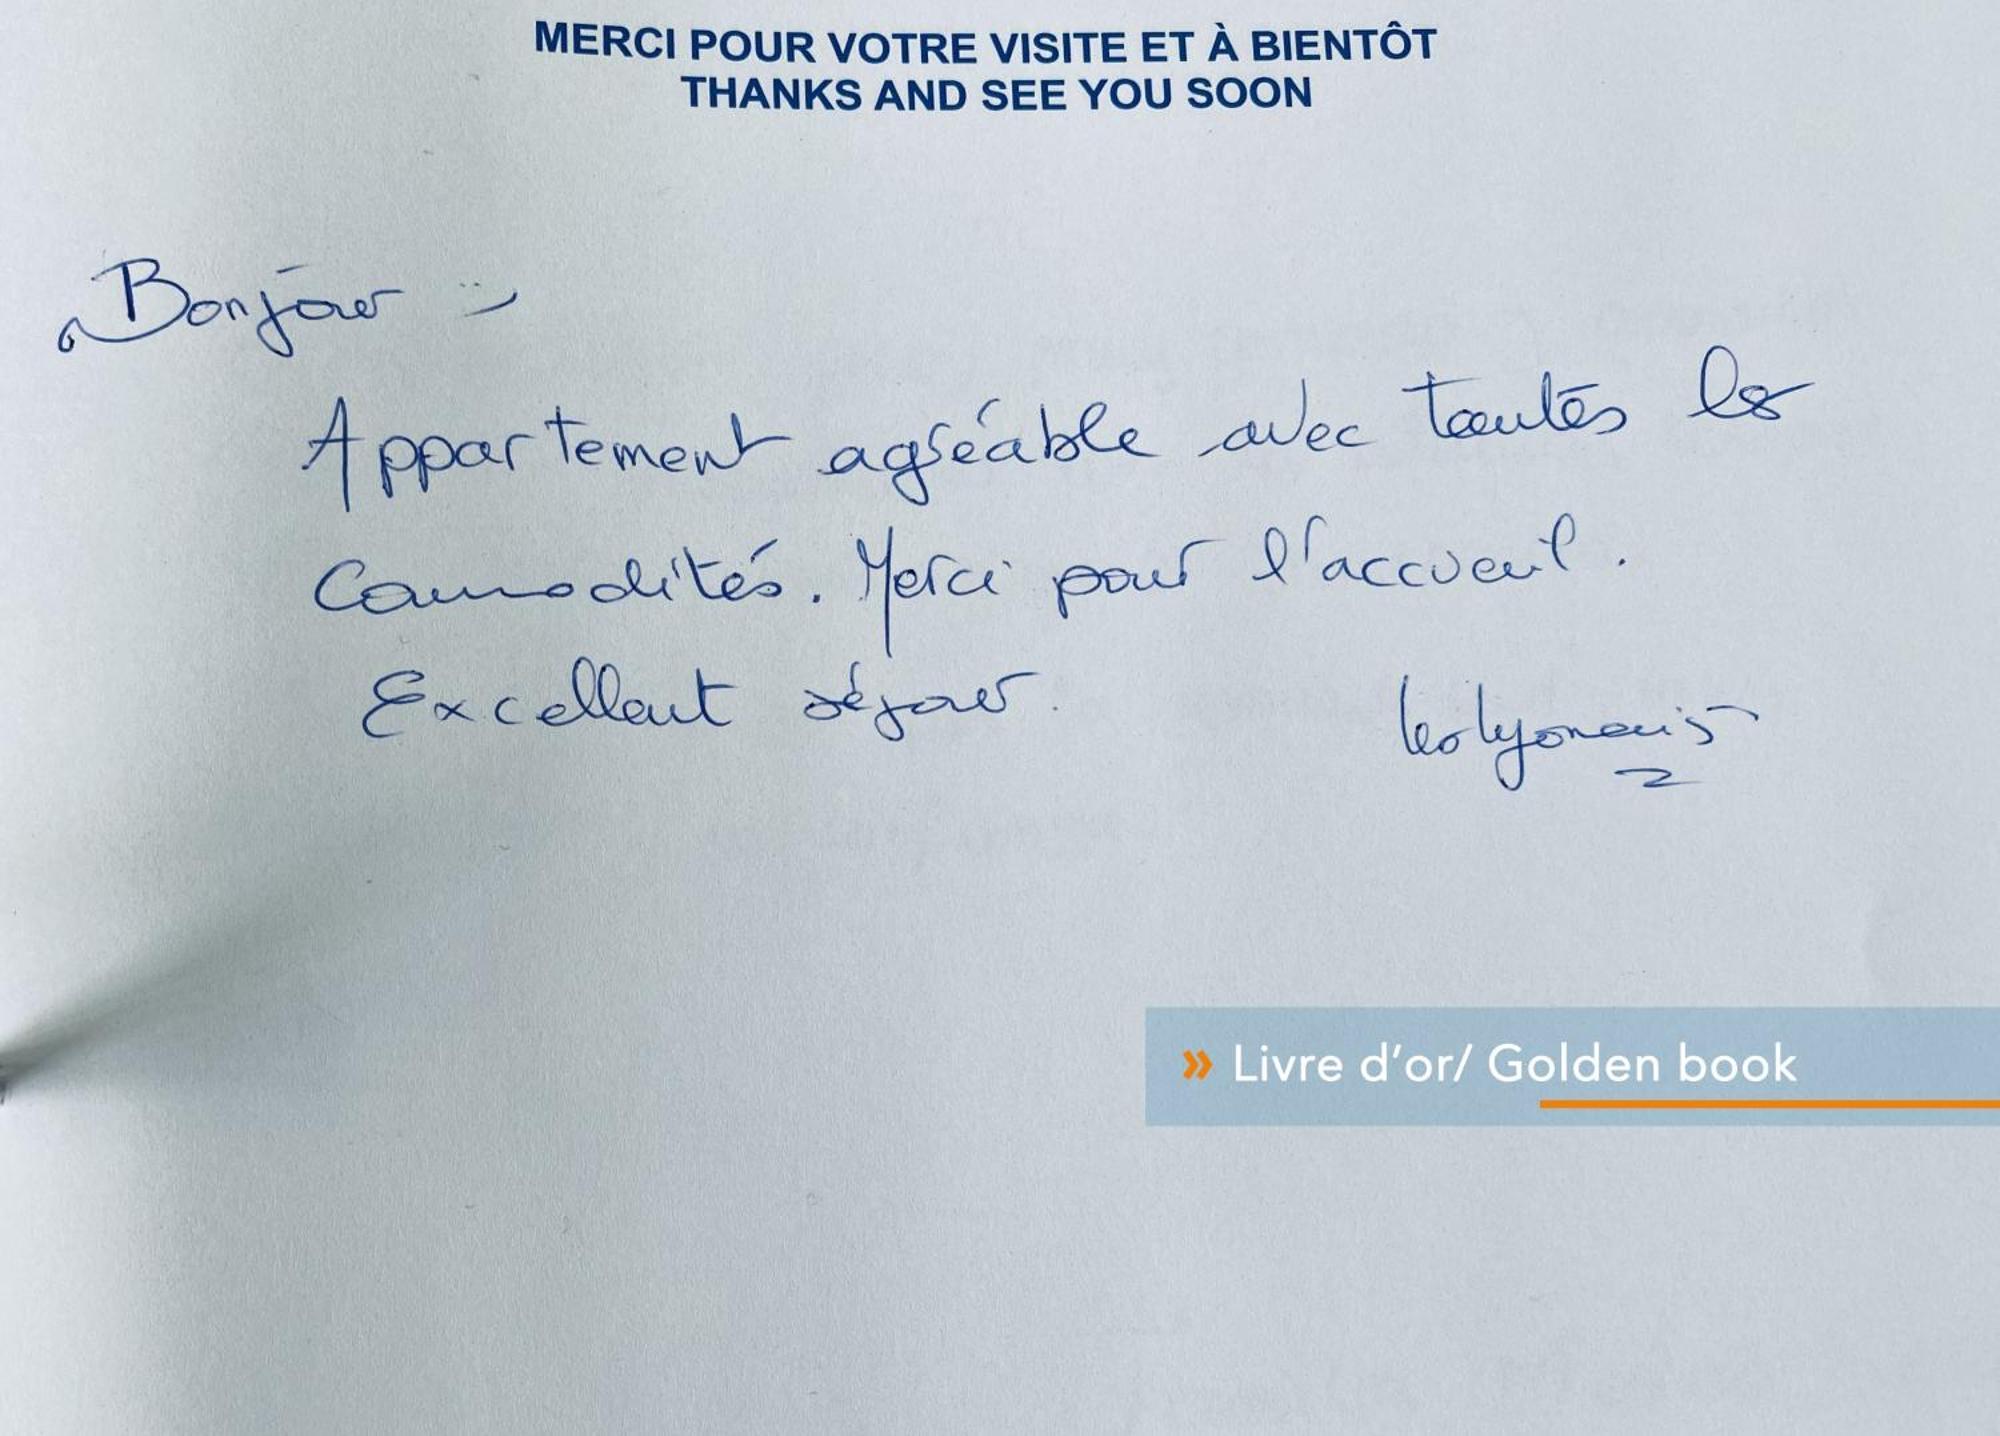 MERCI POUR VOTRE VISITE ET À BIENTÔT
THANKS AND SEE YOU SOON
Bonjour :-)
Appartement agréable avec toutes les
commodités. Merci pour l'accueuil.
Excellent séjour.
les lyonnais
» Livre d'or/ Golden book